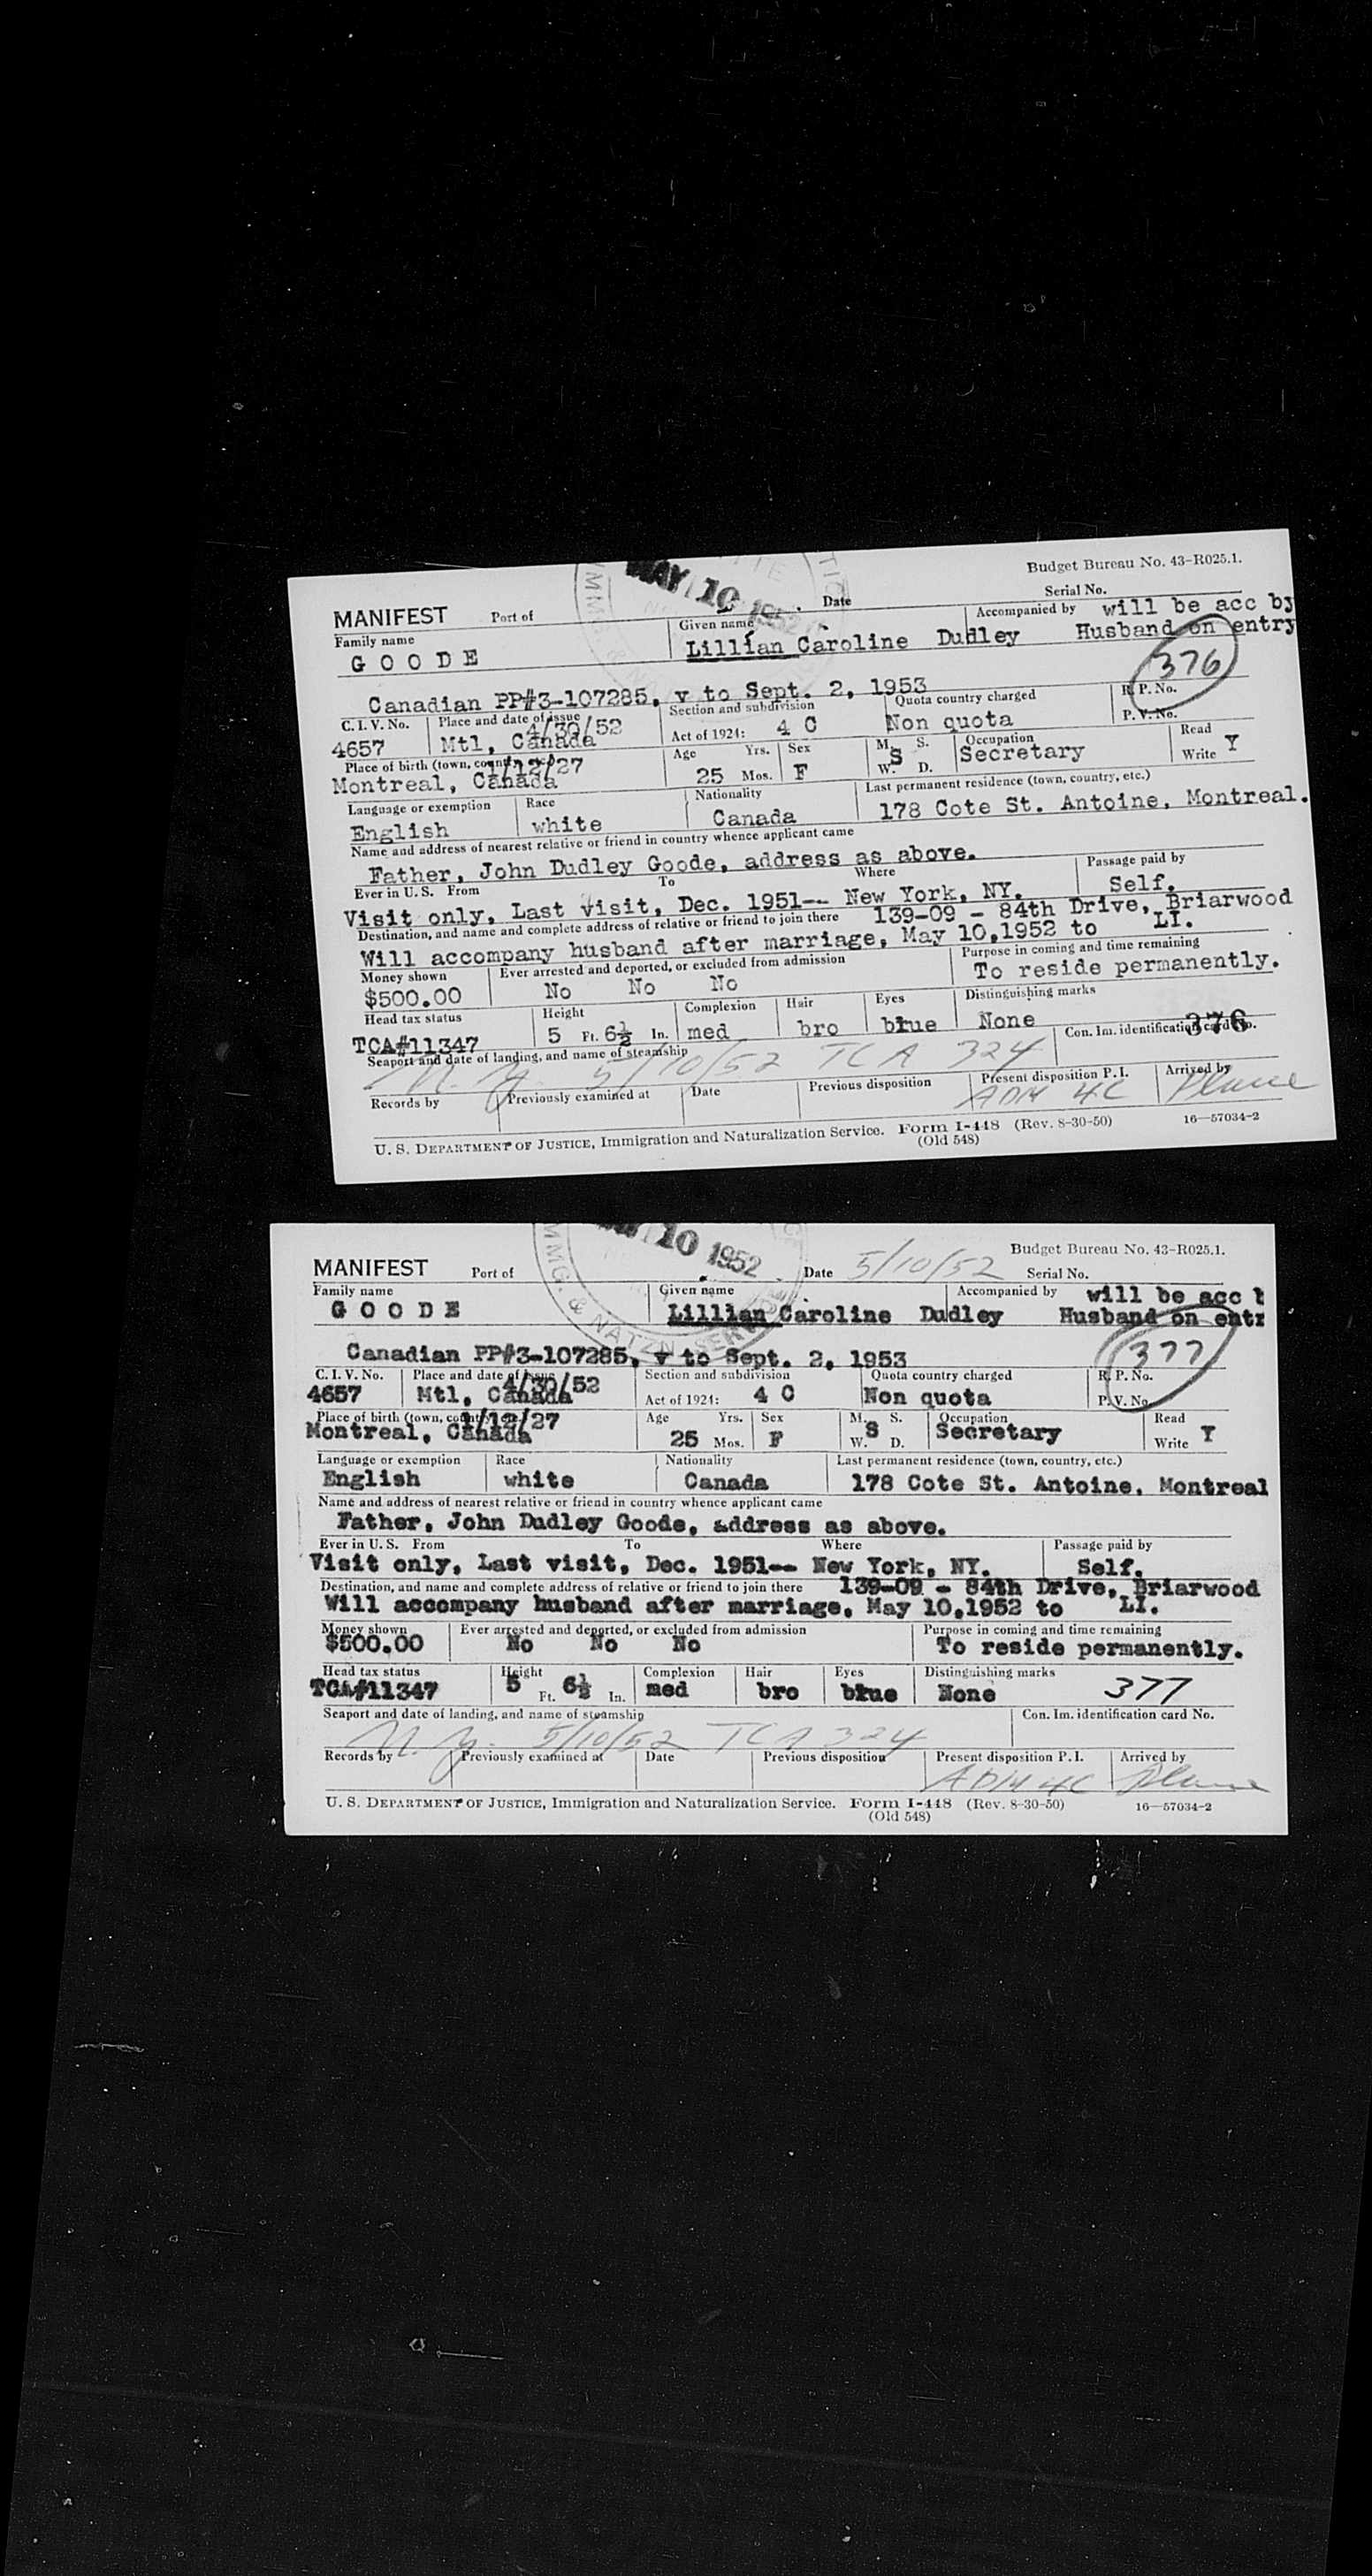 Budget Bureau No. 43-R025.1.
MAY 10 1952
MANIFEST Port of Date Serial No.
Family name Given name Accompanied by will be acc by
G O O D E Lillian Caroline Dudley Husband on entry
376
Canadian PP#3-107285, v to Sept. 2, 1953
C. I. V. No. Place and date of issue Section and subdivision Quota country charged R. P. No.
4657 Mtl, Canada 4/30/52 Act of 1924: 4 C Non quota P. V. No.
Place of birth (town, country, etc.) Age Yrs. Sex M. S. W. D. Occupation Read
Montreal, Canada 1/12/27 25 Mos. F S Secretary Write Y
Language or exemption Race Nationality Last permanent residence (town, country, etc.)
English white Canada 178 Cote St. Antoine, Montreal.
Name and address of nearest relative or friend in country whence applicant came
Father, John Dudley Goode, address as above.
Ever in U. S. From To Where Passage paid by
Visit only, Last visit, Dec. 1951-- New York, NY. Self.
Destination, and name and complete address of relative or friend to join there 139-09 - 84th Drive, Briarwood
Will accompany husband after marriage, May 10,1952 to LI.
Money shown Ever arrested and deported, or excluded from admission Purpose in coming and time remaining
$500.00 No No No To reside permanently.
Head tax status Height Complexion Hair Eyes Distinguishing marks
TCA#11347 5 Ft. 6½ In. med bro blue None 376
Seaport and date of landing, and name of steamship Con. Im. identification card No.
N. Y. 5/10/52 TCA 324
Records by Previously examined at Date Previous disposition Present disposition P. I. Arrived by
ADM 4C Plane
U. S. DEPARTMENT OF JUSTICE, Immigration and Naturalization Service. Form I-448 (Rev. 8-30-50) 16—57034-2
(Old 548)
10 1952
IMMG. & NATZN. SERVICE
Budget Bureau No. 43-R025.1.
MANIFEST Port of Date 5/10/52 Serial No.
Family name Given name Accompanied by will be acc b
G O O D E Lillian Caroline Dudley Husband on entr
377
Canadian PP#3-107285, v to Sept. 2, 1953
C. I. V. No. Place and date of issue Section and subdivision Quota country charged R. P. No.
4657 Mtl, Canada 4/30/52 Act of 1924: 4 C Non quota P. V. No.
Place of birth (town, country, etc.) Age Yrs. Sex M. S. W. D. Occupation Read
Montreal, Canada 1/12/27 25 Mos. F S Secretary Write Y
Language or exemption Race Nationality Last permanent residence (town, country, etc.)
English white Canada 178 Cote St. Antoine, Montreal
Name and address of nearest relative or friend in country whence applicant came
Father, John Dudley Goode, address as above.
Ever in U. S. From To Where Passage paid by
Visit only, Last visit, Dec. 1951-- New York, NY. Self.
Destination, and name and complete address of relative or friend to join there 139-09 - 84th Drive, Briarwood
Will accompany husband after marriage, May 10,1952 to LI.
Money shown Ever arrested and deported, or excluded from admission Purpose in coming and time remaining
$500.00 No No No To reside permanently.
Head tax status Height Complexion Hair Eyes Distinguishing marks
TCA#11347 5 Ft. 6½ In. med bro blue None 377
Seaport and date of landing, and name of steamship Con. Im. identification card No.
N. Y. 5/10/52 TCA 324
Records by Previously examined at Date Previous disposition Present disposition P. I. Arrived by
ADM 4C Plane
U. S. DEPARTMENT OF JUSTICE, Immigration and Naturalization Service. Form I-448 (Rev. 8-30-50) 16—57034-2
(Old 548)